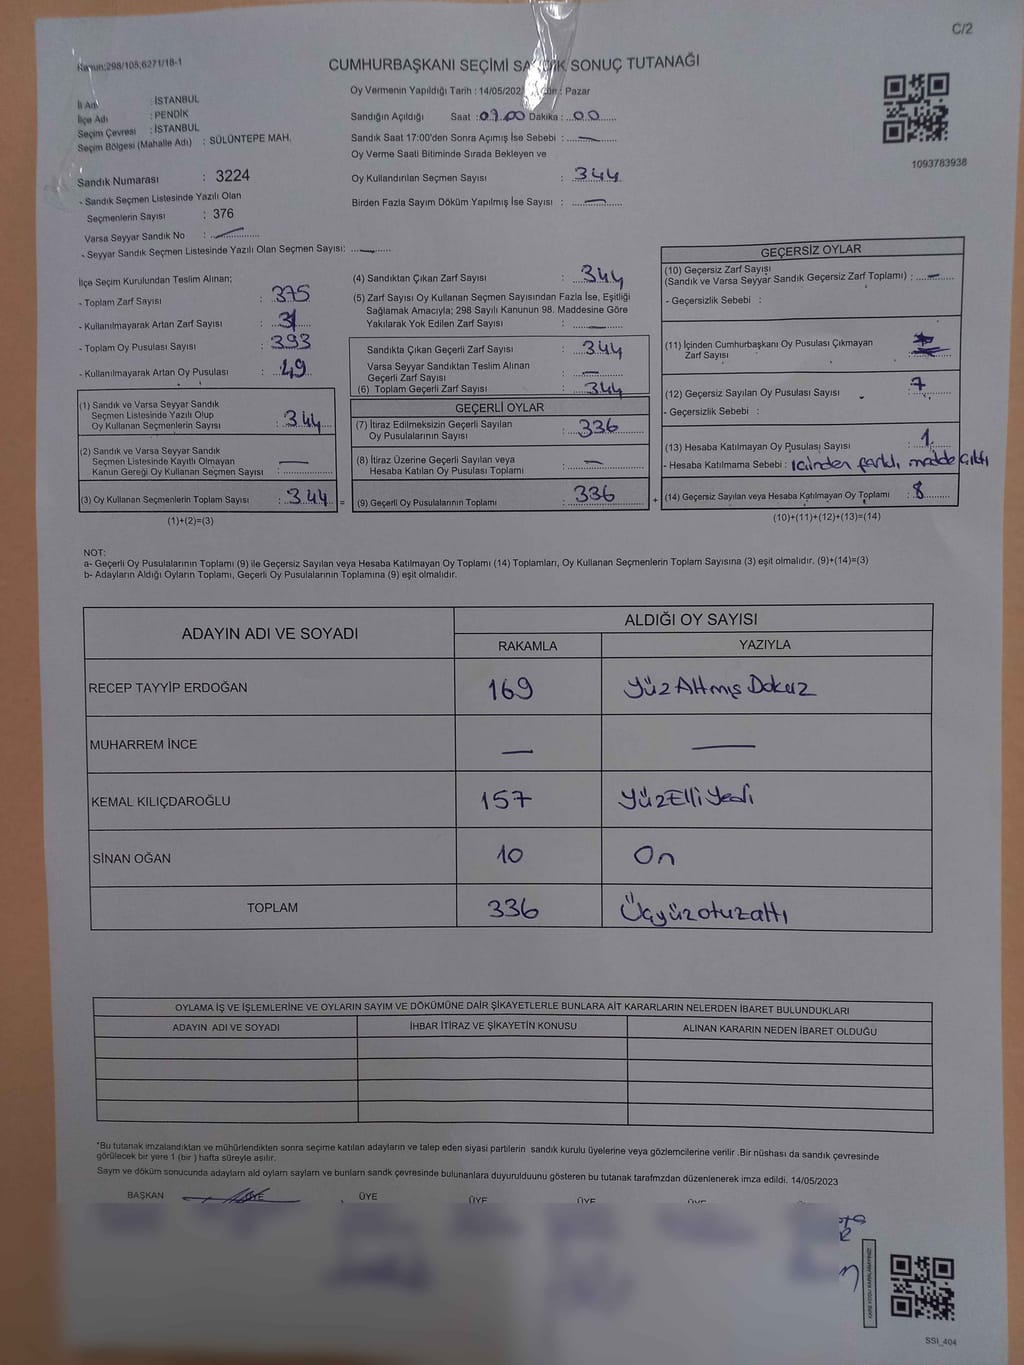 C/2
Kanun:298/105,6271/18-1
CUMHURBAŞKANI SEÇİMİ SANDIK SONUÇ TUTANAĞI
İl Adı : İSTANBUL
İlçe Adı : PENDİK
Seçim Çevresi : İSTANBUL
Seçim Bölgesi (Mahalle Adı) : SÜLÜNTEPE MAH.
Sandık Numarası : 3224
- Sandık Seçmen Listesinde Yazılı Olan
Seçmenlerin Sayısı : 376
Varsa Seyyar Sandık No : —
- Seyyar Sandık Seçmen Listesinde Yazılı Olan Seçmen Sayısı: —
Oy Vermenin Yapıldığı Tarih : 14/05/202 Gün : Pazar
Sandığın Açıldığı Saat : 07.00 Dakika : 00
Sandık Saat 17:00'den Sonra Açımış İse Sebebi : —
Oy Verme Saati Bitiminde Sırada Bekleyen ve
Oy Kullandırılan Seçmen Sayısı : 344
Birden Fazla Sayım Döküm Yapılmış İse Sayısı : —
1093783938
İlçe Seçim Kurulundan Teslim Alınan;
- Toplam Zarf Sayısı : 375
- Kullanılmayarak Artan Zarf Sayısı : 31
- Toplam Oy Pusulası Sayısı : 393
- Kullanılmayarak Artan Oy Pusulası : 49
(1) Sandık ve Varsa Seyyar Sandık
Seçmen Listesinde Yazılı Olup
Oy Kullanan Seçmenlerin Sayısı : 344
(2) Sandık ve Varsa Seyyar Sandık
Seçmen Listesinde Kayıtlı Olmayan
Kanun Gereği Oy Kullanan Seçmen Sayısı : —
(3) Oy Kullanan Seçmenlerin Toplam Sayısı : 344 =
(1)+(2)=(3)
(4) Sandıktan Çıkan Zarf Sayısı : 344
(5) Zarf Sayısı Oy Kullanan Seçmen Sayısından Fazla İse, Eşitliği
Sağlamak Amacıyla; 298 Sayılı Kanunun 98. Maddesine Göre
Yakılarak Yok Edilen Zarf Sayısı : —
Sandıkta Çıkan Geçerli Zarf Sayısı : 344
Varsa Seyyar Sandıktan Teslim Alınan
Geçerli Zarf Sayısı : —
(6) Toplam Geçerli Zarf Sayısı : 344
GEÇERLİ OYLAR
(7) İtiraz Edilmeksizin Geçerli Sayılan
Oy Pusulalarının Sayısı : 336
(8) İtiraz Üzerine Geçerli Sayılan veya
Hesaba Katılan Oy Pusulası Toplamı : —
(9) Geçerli Oy Pusulalarının Toplamı : 336 +
GEÇERSİZ OYLAR
(10) Geçersiz Zarf Sayısı
(Sandık ve Varsa Seyyar Sandık Geçersiz Zarf Toplamı) : —
- Geçersizlik Sebebi :
(11) İçinden Cumhurbaşkanı Oy Pusulası Çıkmayan
Zarf Sayısı :
(12) Geçersiz Sayılan Oy Pusulası Sayısı : 7
- Geçersizlik Sebebi :
(13) Hesaba Katılmayan Oy Pusulası Sayısı : 1
- Hesaba Katılmama Sebebi : İçinden farklı madde çıktı
(14) Geçersiz Sayılan veya Hesaba Katılmayan Oy Toplamı : 8
(10)+(11)+(12)+(13)=(14)
NOT:
a- Geçerli Oy Pusulalarının Toplamı (9) ile Geçersiz Sayılan veya Hesaba Katılmayan Oy Toplamı (14) Toplamları, Oy Kullanan Seçmenlerin Toplam Sayısına (3) eşit olmalıdır. (9)+(14)=(3)
b- Adayların Aldığı Oyların Toplamı, Geçerli Oy Pusulalarının Toplamına (9) eşit olmalıdır.
ADAYIN ADI VE SOYADI ALDIĞI OY SAYISI
RAKAMLA YAZIYLA
RECEP TAYYİP ERDOĞAN 169 Yüz Altmış Dokuz
MUHARREM İNCE — —
KEMAL KILIÇDAROĞLU 157 Yüz Elli Yedi
SİNAN OĞAN 10 On
TOPLAM 336 Üçyüzotuzaltı
OYLAMA İŞ VE İŞLEMLERİNE VE OYLARIN SAYIM VE DÖKÜMÜNE DAİR ŞİKAYETLERLE BUNLARA AİT KARARLARIN NELERDEN İBARET BULUNDUKLARI
ADAYIN ADI VE SOYADI İHBAR İTİRAZ VE ŞİKAYETİN KONUSU ALINAN KARARIN NEDEN İBARET OLDUĞU
*Bu tutanak imzalandıktan ve mühürlendikten sonra seçime katılan adayların ve talep eden siyasi partilerin sandık kurulu üyelerine veya gözlemcilerine verilir .Bir nüshası da sandık çevresinde
görülecek bir yere 1 (bir ) hafta süreyle asılır.
Sayım ve döküm sonucunda adayların ald oyların sayların ve bunların sandk çevresinde bulunanlara duyurulduunu gösteren bu tutanak tarafmzdan düzenlenerek imza edildi. 14/05/2023
BAŞKAN ÜYE ÜYE ÜYE ÜYE ÜYE
SSI_404